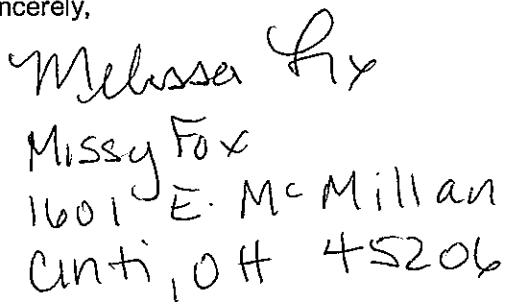 ncerely,
Melissa Fox
Missy Fox
1601 E. McMillan
Cinti, OH 45206